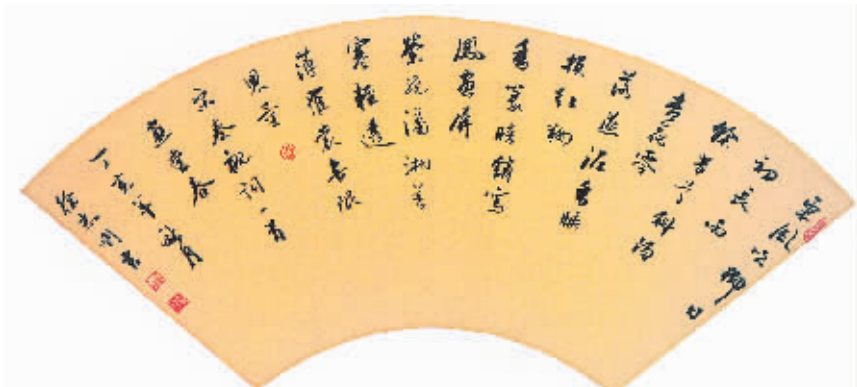 東風吹柳日
初長雨
餘芳草斜陽
杏花零
落燕泥香睡
損紅妝
香篆暗銷鸞
鳳畫屏
縈繞瀟湘暮
寒輕透
薄羅裳無限
思量
宋秦觀詞一首
畫堂春
丁亥年月
徐志書